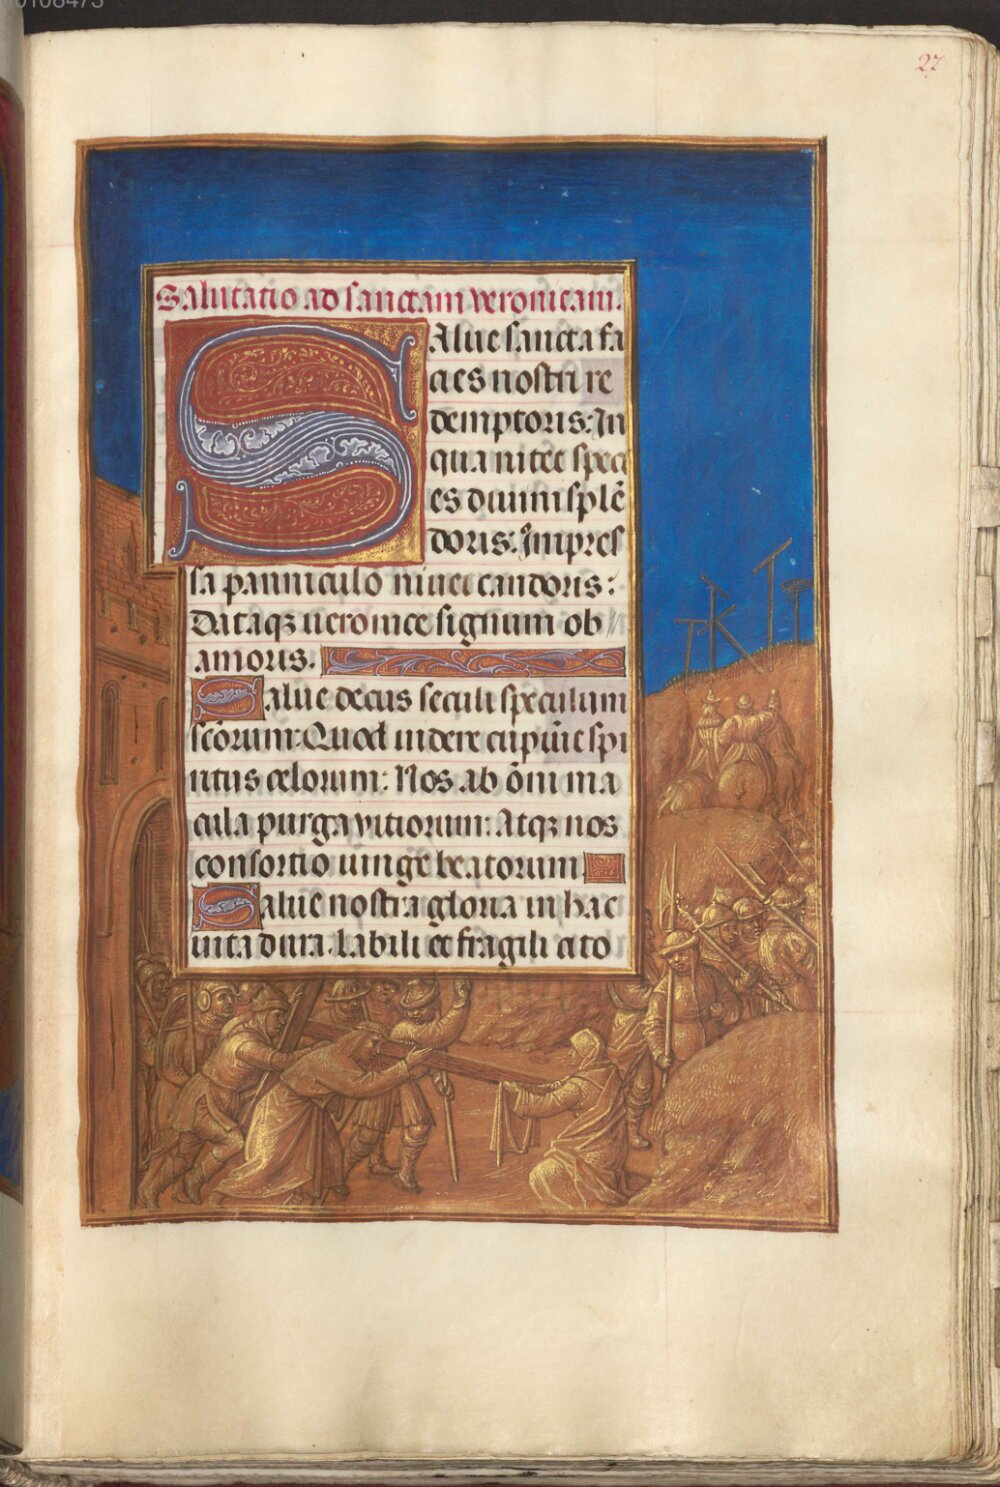 27
Salutatio ad sanctam veronicam.
Salue sancta fa
cies nostri re
demptoris: In
qua nitet speci
es diuini splē
doris: Impres
sa panniculo niuei candoris:
Dataqꝫ ueronice signum ob
amoris.
Salue decus seculi speculum
scōrum: Quod uidere cupiūt spi
ritus celorum: Nos ab ōni ma
cula purga vitiorum: Atqꝫ nos
consortio iunge beatorum.
Salue nostra gloria in hac
uita dura. Labili et fragili cito